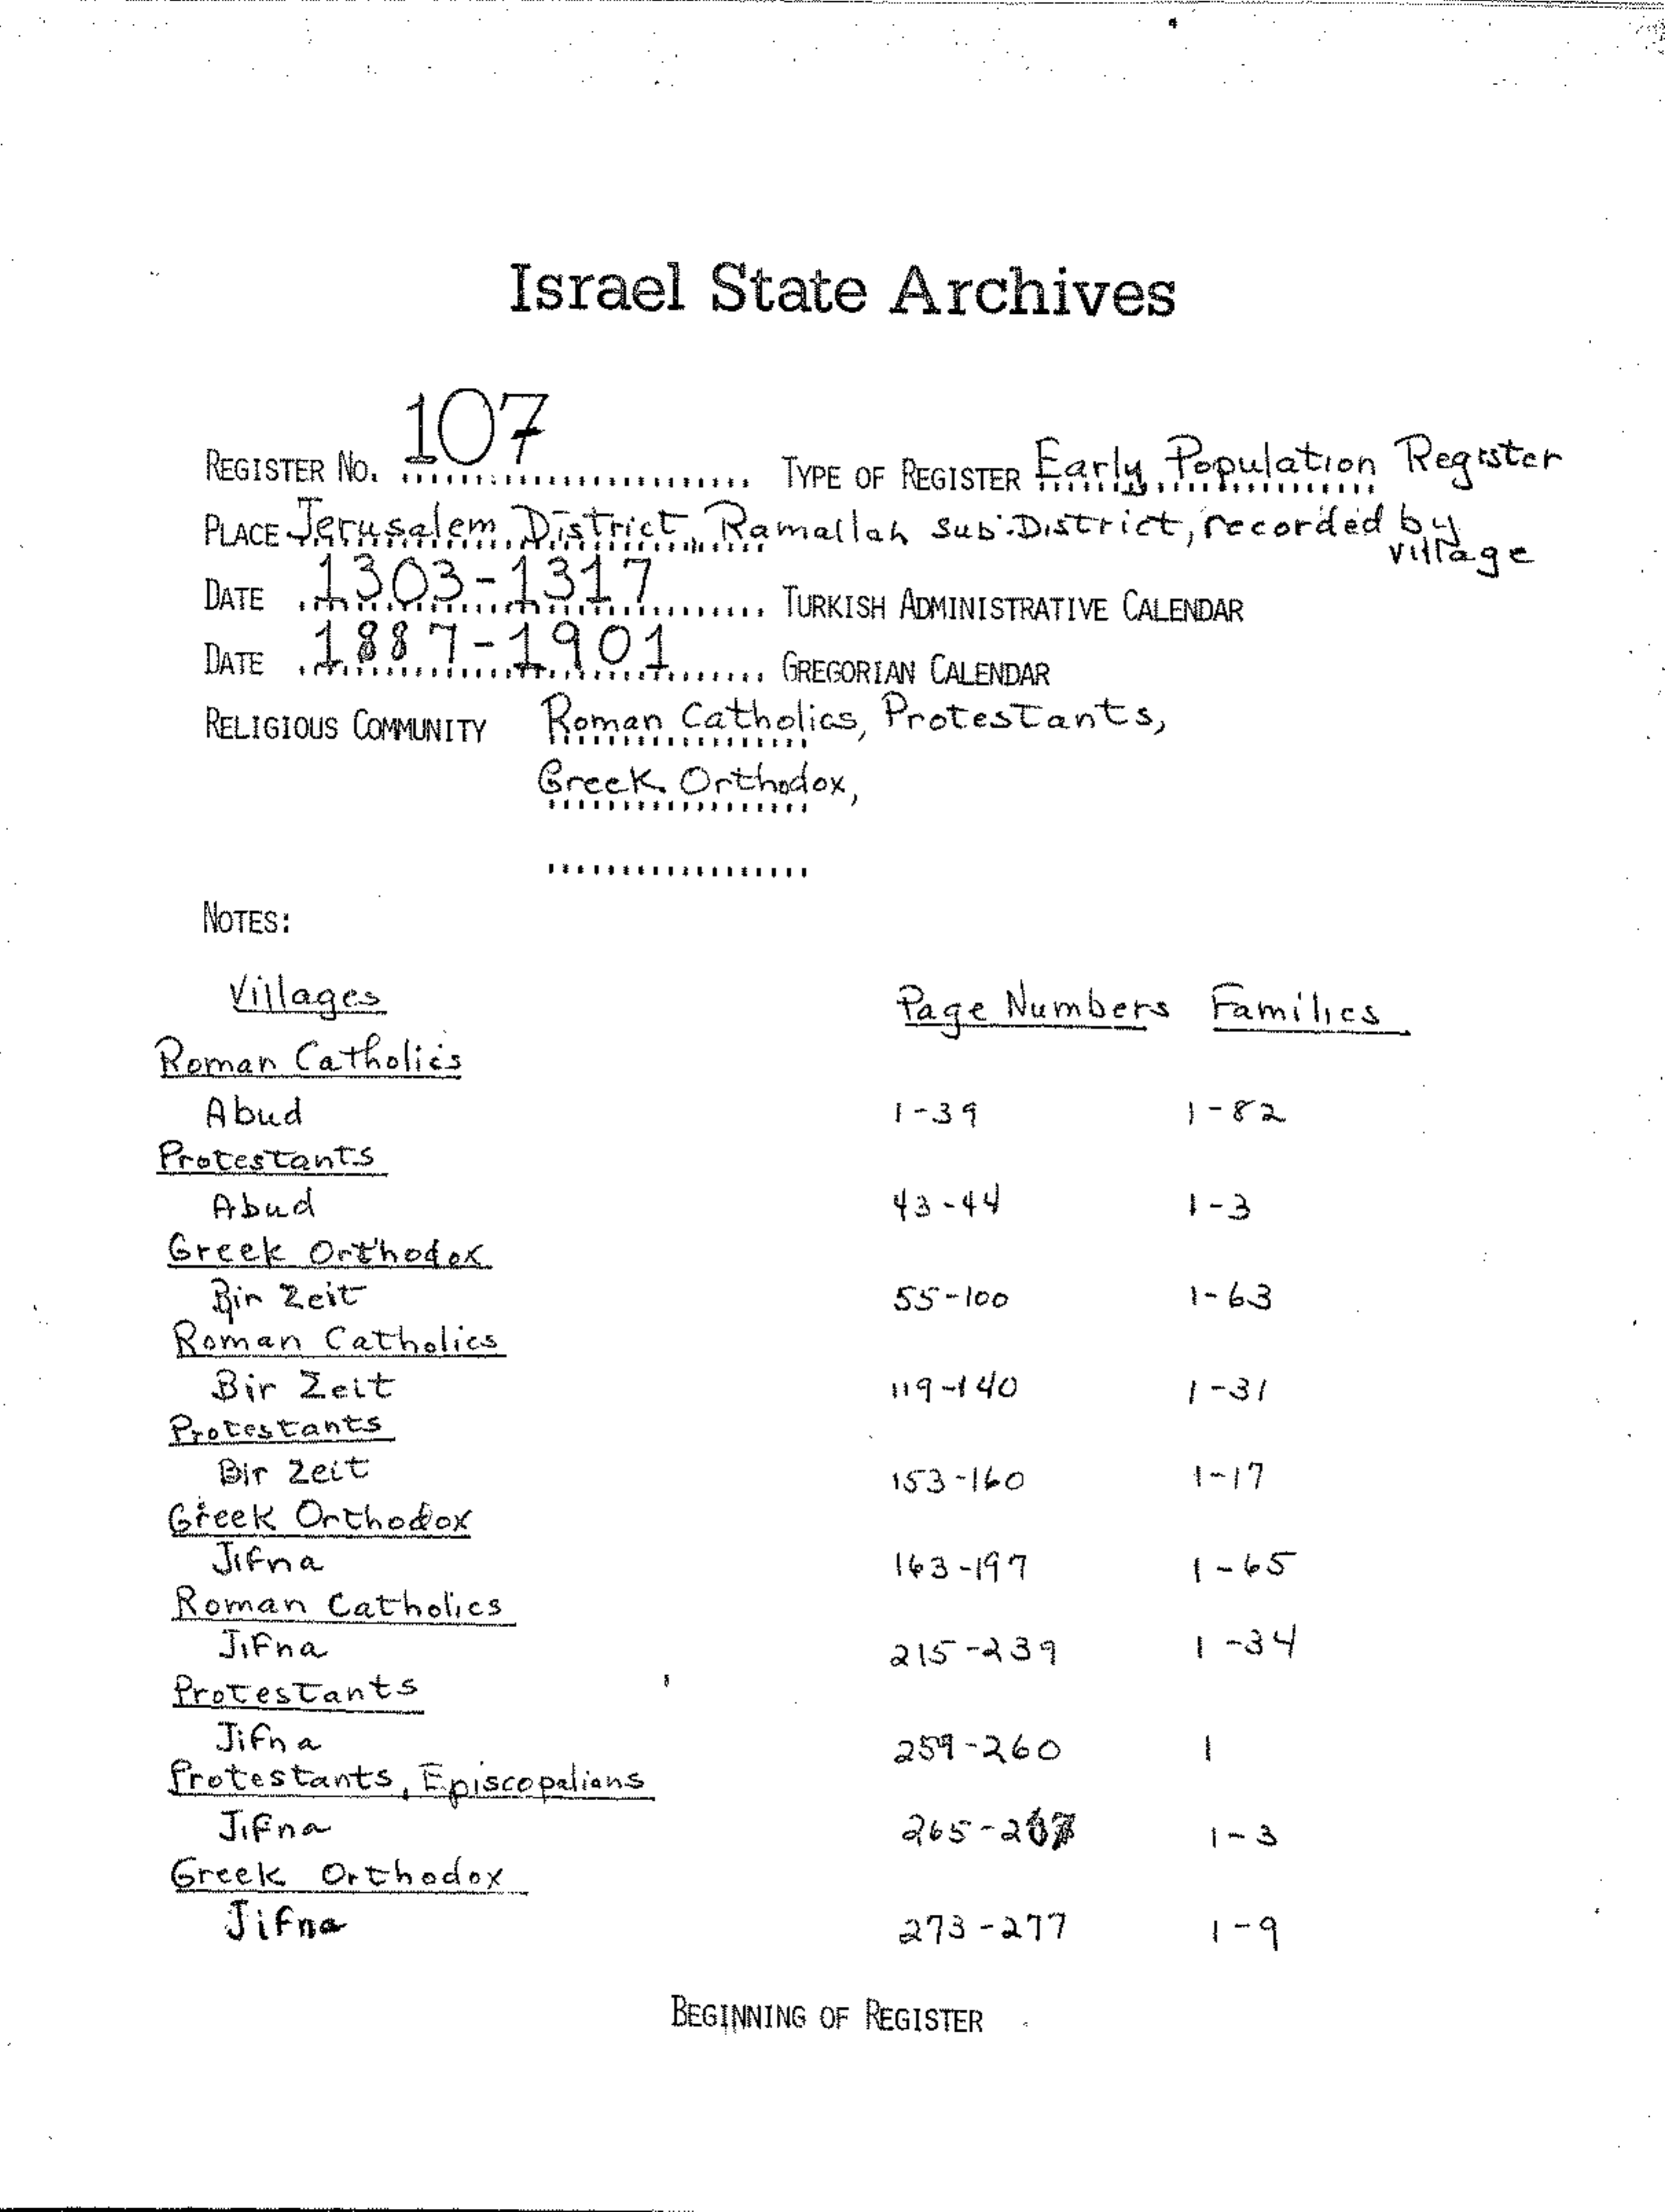 Israel State Archives
REGISTER NO. 107 TYPE OF REGISTER Early Population Register
PLACE Jerusalem District, Ramallah Sub-District, recorded by village
DATE 1303-1317 TURKISH ADMINISTRATIVE CALENDAR
DATE 1887-1901 GREGORIAN CALENDAR
RELIGIOUS COMMUNITY Roman Catholics, Protestants,
Greek Orthodox,
NOTES:
Villages Page Numbers Families
Roman Catholics
Abud 1-39 1-82
Protestants
Abud 43-44 1-3
Greek Orthodox
Bir Zeit 55-100 1-63
Roman Catholics
Bir Zeit 119-140 1-31
Protestants
Bir Zeit 153-160 1-17
Greek Orthodox
Jifna 163-197 1-65
Roman Catholics
Jifna 215-239 1-34
Protestants
Jifna 259-260 1
Protestants, Episcopalians
Jifna 265-267 1-3
Greek Orthodox
Jifna 273-277 1-9
BEGINNING OF REGISTER